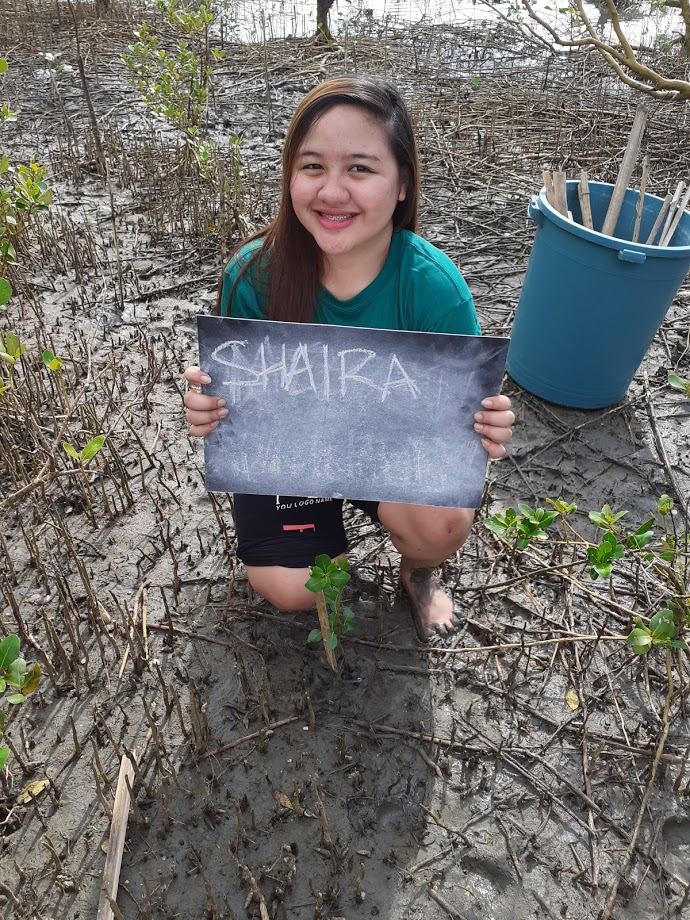 SHAIRA
YOU LOGO NAME